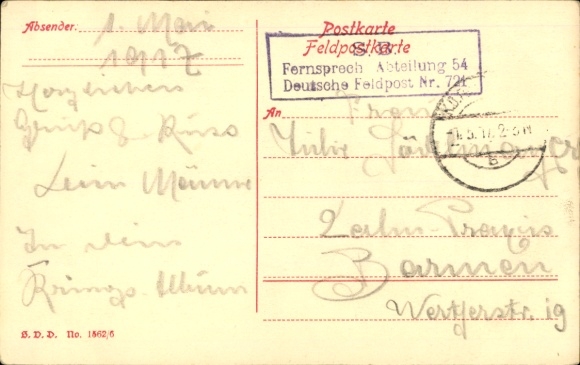 Absender:
1. Mai
1917
Herzlichen
Gruß & Kuss
Dein Männe
In dein
Kriegs-Album
B. D. D. No. 1562/6
Postkarte
Feldpostkarte
S. B.
Fernsprech Abteilung 54
Deutsche Feldpost Nr. 721
An
Frau
Zahn-Praxis
Barmen
Wertherstr. 19